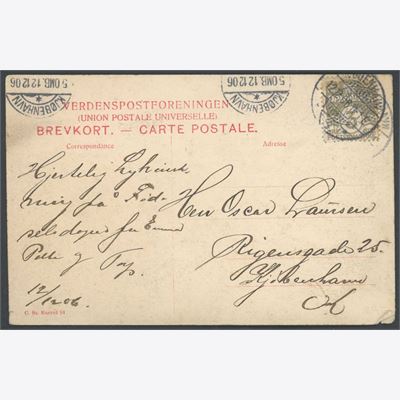 KJØBENHAVN
5.OMB. 12 12 06
KJØBENHAVN
5.OMB. 12 12 06
VERDENSPOSTFORENINGEN
(UNION POSTALE UNIVERSELLE)
BREVKORT. — CARTE POSTALE.
Correspondance
Adresse
Hjertelig Lykønsk
ning på Fød-
selsdagen fra Emma
Palle og
12/12 06.
Herr Oscar Laursen
Rigensgade 25.
Kjøbenhavn
K